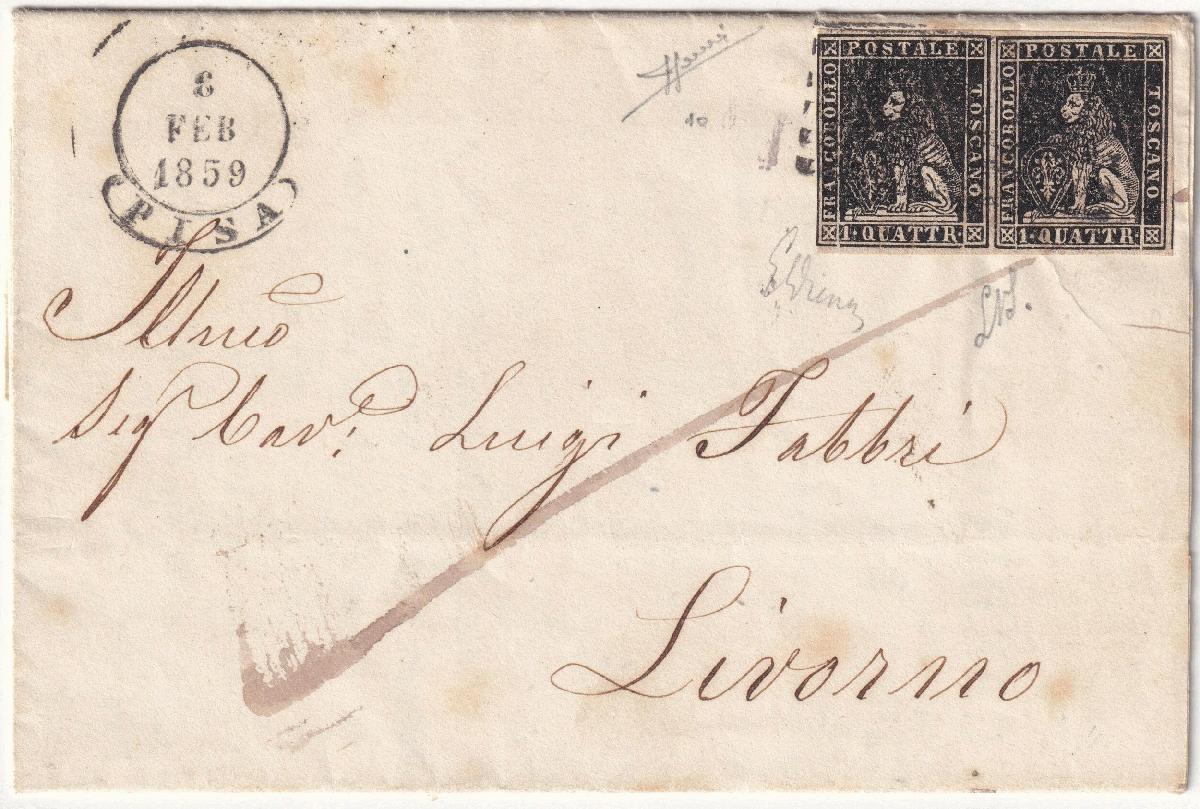 8
FEB
1859
PISA
FRANCOBOLLO POSTALE TOSCANO 1·QUATTR·
FRANCOBOLLO POSTALE TOSCANO 1·QUATTR·
EDiena
Illmo
Sig Cav: Luigi Fabbri
Livorno